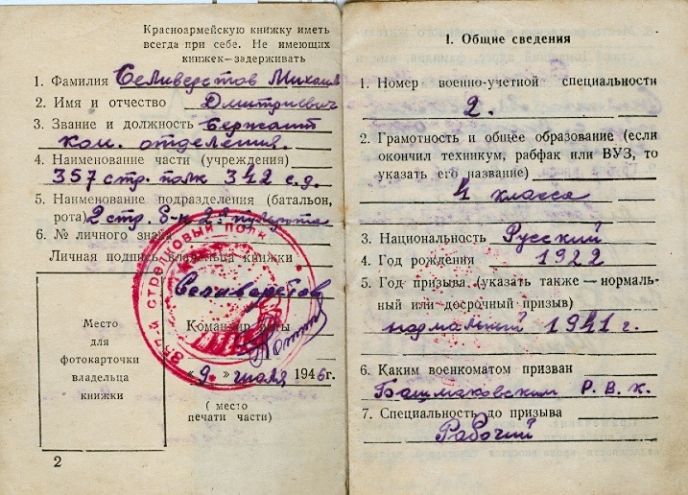 Красноармейскую книжку иметь
всегда при себе. Не имеющих
книжек-задерживать
1. Фамилия Селиверстов Михаил
2. Имя и отчество Дмитриевич
3. Звание и должность Сержант
ком. отделения.
4. Наименование части (учреждения)
357 стр. полк 342 с.д.
5. Наименование подразделения (батальон,
рота) 2 стр. б-н 2ая пульрота
6. № личного знака
Личная подпись владельца книжки
Селиверстов
Командир роты
Место
для
фотокарточки
владельца
книжки
„9“ июля 1946г.
( место
печати части)
357й СТРЕЛКОВЫЙ ПОЛК
2
I. Общие сведения
1. Номер военно-учетной специальности
2.
2. Грамотность и общее образование (если
окончил техникум, рабфак или ВУЗ, то
указать его название)
4 класса
3. Национальность Русский
4. Год рождения 1922
5. Год призыва (указать также — нормаль-
ный или досрочный призыв)
нормальный 1941 г.
6. Каким военкоматом призван
Башмаковским Р.В.К.
7. Специальность до призыва
Рабочий